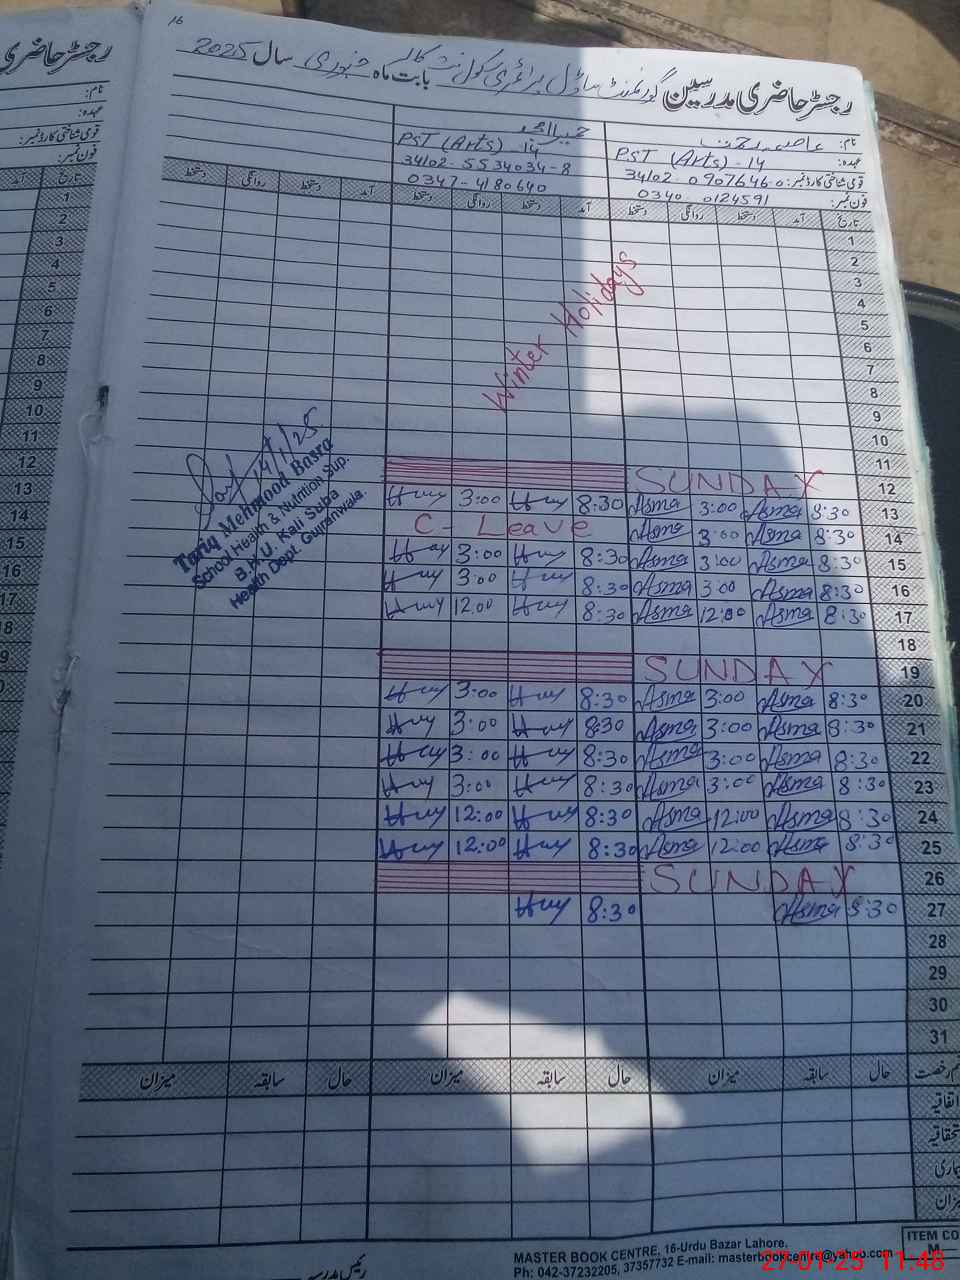 16
رجسٹر حاضری مدرسین گورنمنٹ ماڈل پرائمری سکول بابت ماہ جنوری سال 2025
نام:
PST (Arts) - 14
عہدہ: PST (Arts) - 14
34102-5534034-8
قومی شناختی کارڈ نمبر: 34102-0907646-0
0347-4180640
فون نمبر: 0340 0124591
تاریخ آمد دستخط روانگی دستخط آمد دستخط روانگی دستخط آمد دستخط روانگی دستخط
1
2
3
4
5
6
7
8
9
10
11
Winter Holidays
12 SUNDAY
13 8:30 Asma 3:00 Asma 8:30 Huy 3:00 Huy
14 8:30 Asma 3:00 Asma C-Leave
15 8:30 Asma 3:00 Asma 8:30 Huy 3:00 Huy
16 8:30 Asma 3:00 Asma 8:30 Huy 3:00 Huy
17 8:30 Asma 12:00 Asma 8:30 Huy 12:00 Huy
18
19 SUNDAY
20 8:30 Asma 3:00 Asma 8:30 Huy 3:00 Huy
21 8:30 Asma 3:00 Asma 8:30 Huy 3:00 Huy
22 8:30 Asma 3:00 Asma 8:30 Huy 3:00 Huy
23 8:30 Asma 3:00 Asma 8:30 Huy 3:00 Huy
24 8:30 Asma 12:00 Asma 8:30 Huy 12:00 Huy
25 8:30 Asma 12:00 Asma 8:30 Huy 12:00 Huy
26 SUNDAY
27 8:30 Asma 8:30 Huy
28
29
30
31
14/1/25
Tariq Mehmood Basra
School Health & Nutrition Sup.
B.H.U. Kali Suba
Health Dept. Gujranwala.
رخصت حال سابقہ میزان حال سابقہ میزان حال سابقہ میزان
اتفاقیہ
میزان
رئیس مدرسہ
MASTER BOOK CENTRE, 16-Urdu Bazar Lahore.
Ph: 042-37232205, 37357732 E-mail: masterbookcentre@yahoo.com
ITEM CO
M
27-01-25 11:48
رجسٹر حاضری
نام:
عہدہ:
قومی شناختی کارڈ نمبر:
فون نمبر:
تاریخ
1
2
3
4
5
6
7
8
9
10
11
12
13
14
15
16
17
18